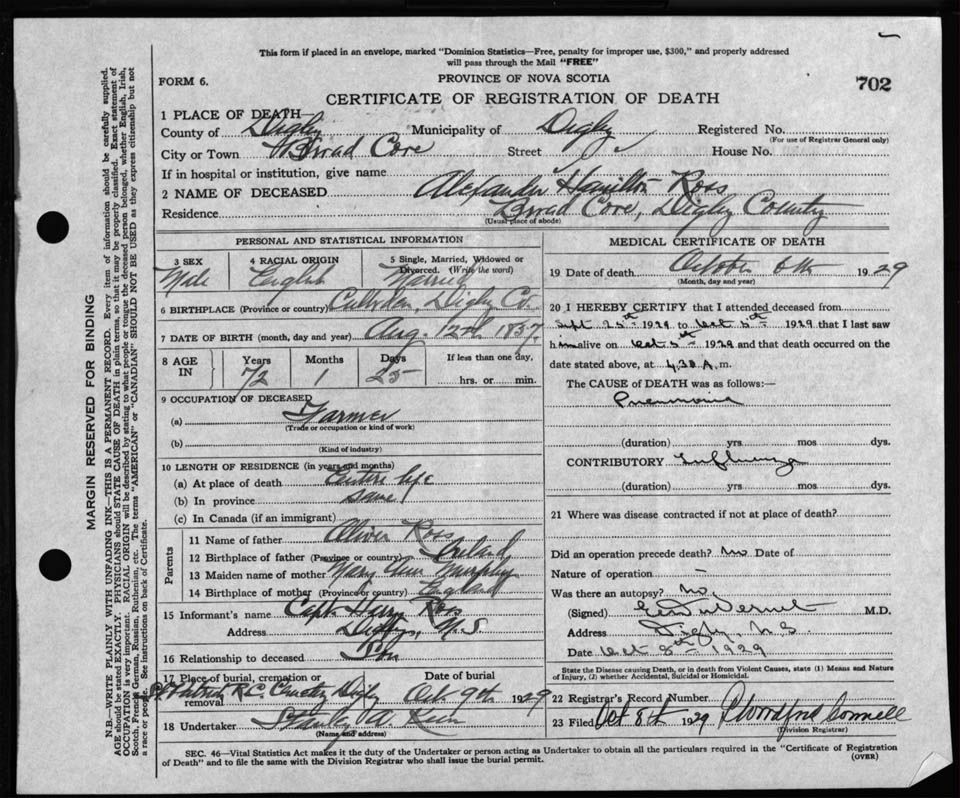 This form if placed in an envelope, marked "Dominion Statistics—Free, penalty for improper use, $300," and properly addressed
will pass through the Mail "FREE"
FORM 6.
PROVINCE OF NOVA SCOTIA
702
CERTIFICATE OF REGISTRATION OF DEATH
1 PLACE OF DEATH—
County of Digby Municipality of Digby Registered No.
(For use of Registrar General only)
City or Town Broad Cove Street House No.
If in hospital or institution, give name
2 NAME OF DECEASED Alexander Hamilton Ross
Residence Broad Cove, Digby County
(Usual place of abode)
PERSONAL AND STATISTICAL INFORMATION
3 SEX 4 RACIAL ORIGIN 5 Single, Married, Widowed or
Divorced. (Write the word)
Male English Married
6 BIRTHPLACE (Province or country) Culloden, Digby Co.
7 DATE OF BIRTH (month, day and year) Aug. 12th 1857.
8 AGE IN Years Months Days If less than one day,
72 1 25 hrs. or min.
9 OCCUPATION OF DECEASED
(a) Farmer
(Trade or occupation or kind of work)
(b)
(Kind of industry)
10 LENGTH OF RESIDENCE (in years and months)
(a) At place of death Entire life
(b) In province same
(c) In Canada (if an immigrant)
Parents
11 Name of father Oliver Ross
12 Birthplace of father (Province or country) Ireland
13 Maiden name of mother Mary Ann Murphy
14 Birthplace of mother (Province or country) England
15 Informant's name Capt. Harry Ross
Address Digby, N.S.
16 Relationship to deceased Son
17 Place of burial, cremation or Date of burial
removal St Patrick R.C. Digby Oct 9th 1929
18 Undertaker Stanley A.
(Name and address)
MEDICAL CERTIFICATE OF DEATH
19 Date of death October 6th 1929
(Month, day and year)
20 I HEREBY CERTIFY that I attended deceased from
Sept 25th 1929 to Oct 5th 1929 that I last saw
him alive on Oct 5th 1929 and that death occurred on the
date stated above, at 4.30 A.m.
The CAUSE of DEATH was as follows:—
Pneumonia
(duration) yrs mos dys.
CONTRIBUTORY Influenza
(duration) yrs mos dys.
21 Where was disease contracted if not at place of death?
Did an operation precede death? No Date of
Nature of operation —
Was there an autopsy? No.
(Signed) M.D.
Address Digby, N.S.
Date Oct 8th 1929
State the Disease causing Death, or in death from Violent Causes, state (1) Means and Nature
of Injury, (2) whether Accidental, Suicidal or Homicidal.
22 Registrar's Record Number
23 Filed Oct 8th 1929
(Division Registrar)
SEC. 46—Vital Statistics Act makes it the duty of the Undertaker or person acting as Undertaker to obtain all the particulars required in the "Certificate of Registration
of Death" and to file the same with the Division Registrar who shall issue the burial permit.
(OVER)
MARGIN RESERVED FOR BINDING
N.B.—WRITE PLAINLY WITH UNFADING INK—THIS IS A PERMANENT RECORD. Every item of information should be carefully supplied.
AGE should be stated EXACTLY. PHYSICIANS should STATE CAUSE OF DEATH in plain terms, so that it may be properly classified. Exact statement of
OCCUPATION is very important. RACIAL ORIGIN will be described by stating to what people or tongue the deceased person belonged, whether English, Irish,
Scotch, French, German, Russian, Ruthenian, etc. The terms "AMERICAN" or "CANADIAN" SHOULD NOT BE USED as they express citizenship but not
a race or people. See instructions on back of Certificate.